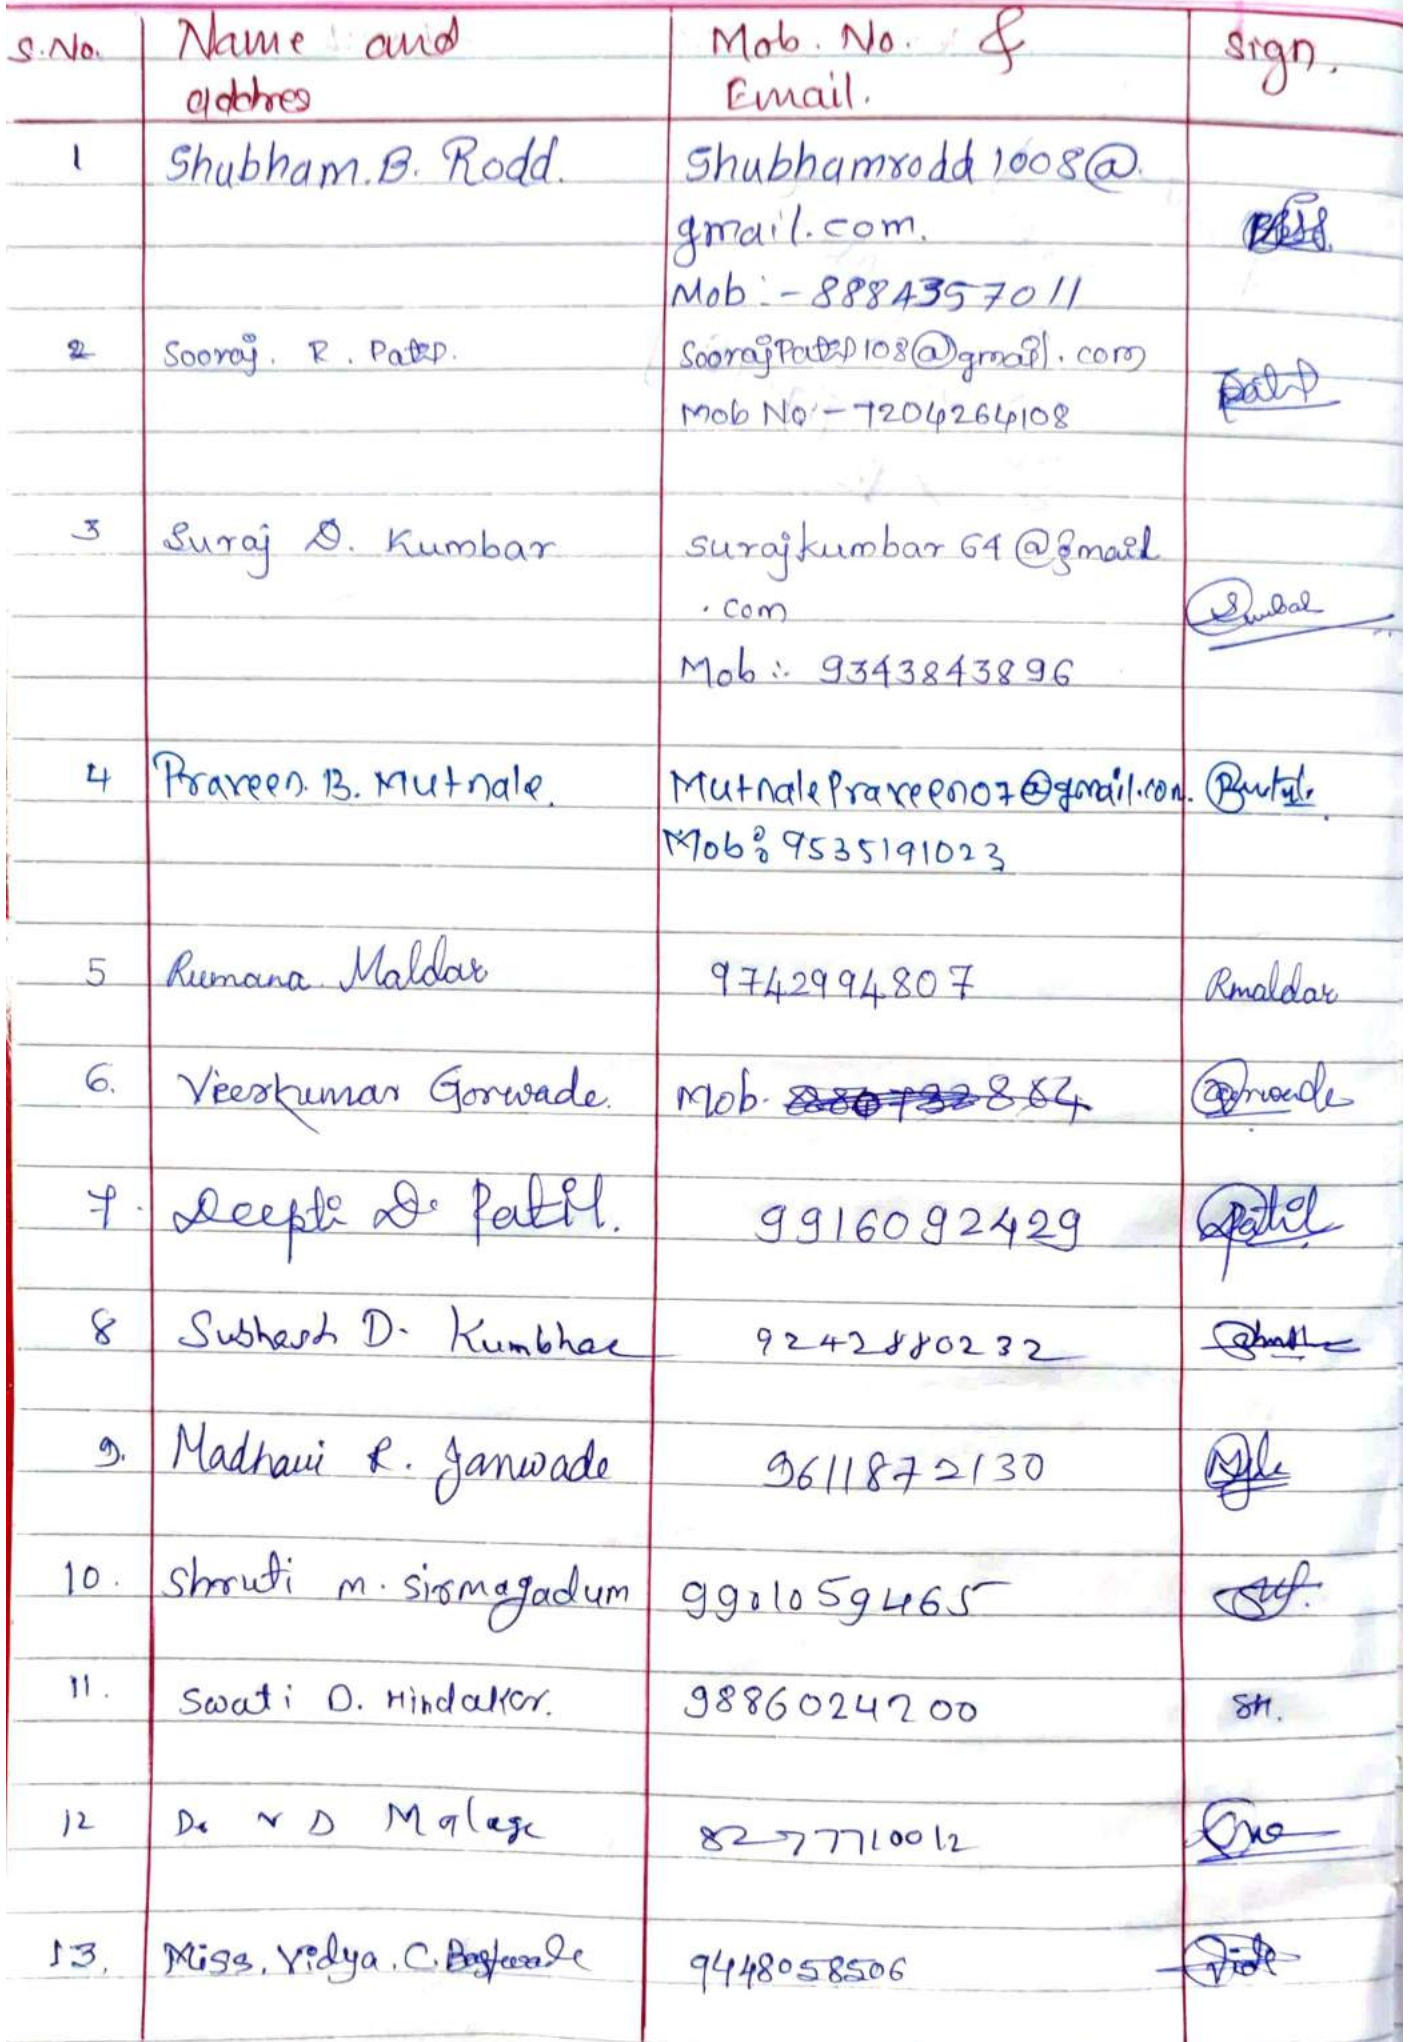 S.No. Name and Mob. No. & Sign.
address Email.
1 Shubham.B. Rodd. Shubhamrodd1008@
gmail.com.
Mob :- 8884357011
2 Sooraj. R. Patil. SoorajPatil108@gmail.com
Patil
Mob No :- 7204264108
3 Suraj D. Kumbar surajkumbar64@gmail
.com
Mob :- 9343843896
4 Praveen. B. Mutnale. MutnalePraveen07@gmail.com.
Mob: 9535191023
5 Rumana Maldar 9742994807 Rmaldar
6. Veerkumar Gorwade. Mob.
7. Deepti D. Patil. 9916092429 Patil
8 Subhash D. Kumbhar 9242880232
9. Madhavi R. Janwade 9611872130
10. Shruti M. Sirmagadum 9901059465
11. Swati D. Hindalkar. 9886024200 SH.
12 D. Malage 8277710012
13. Miss. Vidya. C. 9448058506